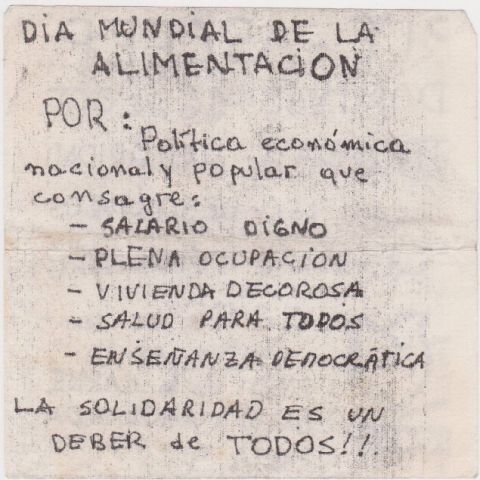 DIA MUNDIAL DE LA
ALIMENTACION
POR:
Política económica
nacional y popular que
consagre:
- SALARIO DIGNO
- PLENA OCUPACION
- VIVIENDA DECOROSA
- SALUD PARA TODOS
- ENSEÑANZA DEMOCRÁTICA
LA SOLIDARIDAD ES UN
DEBER de TODOS!!